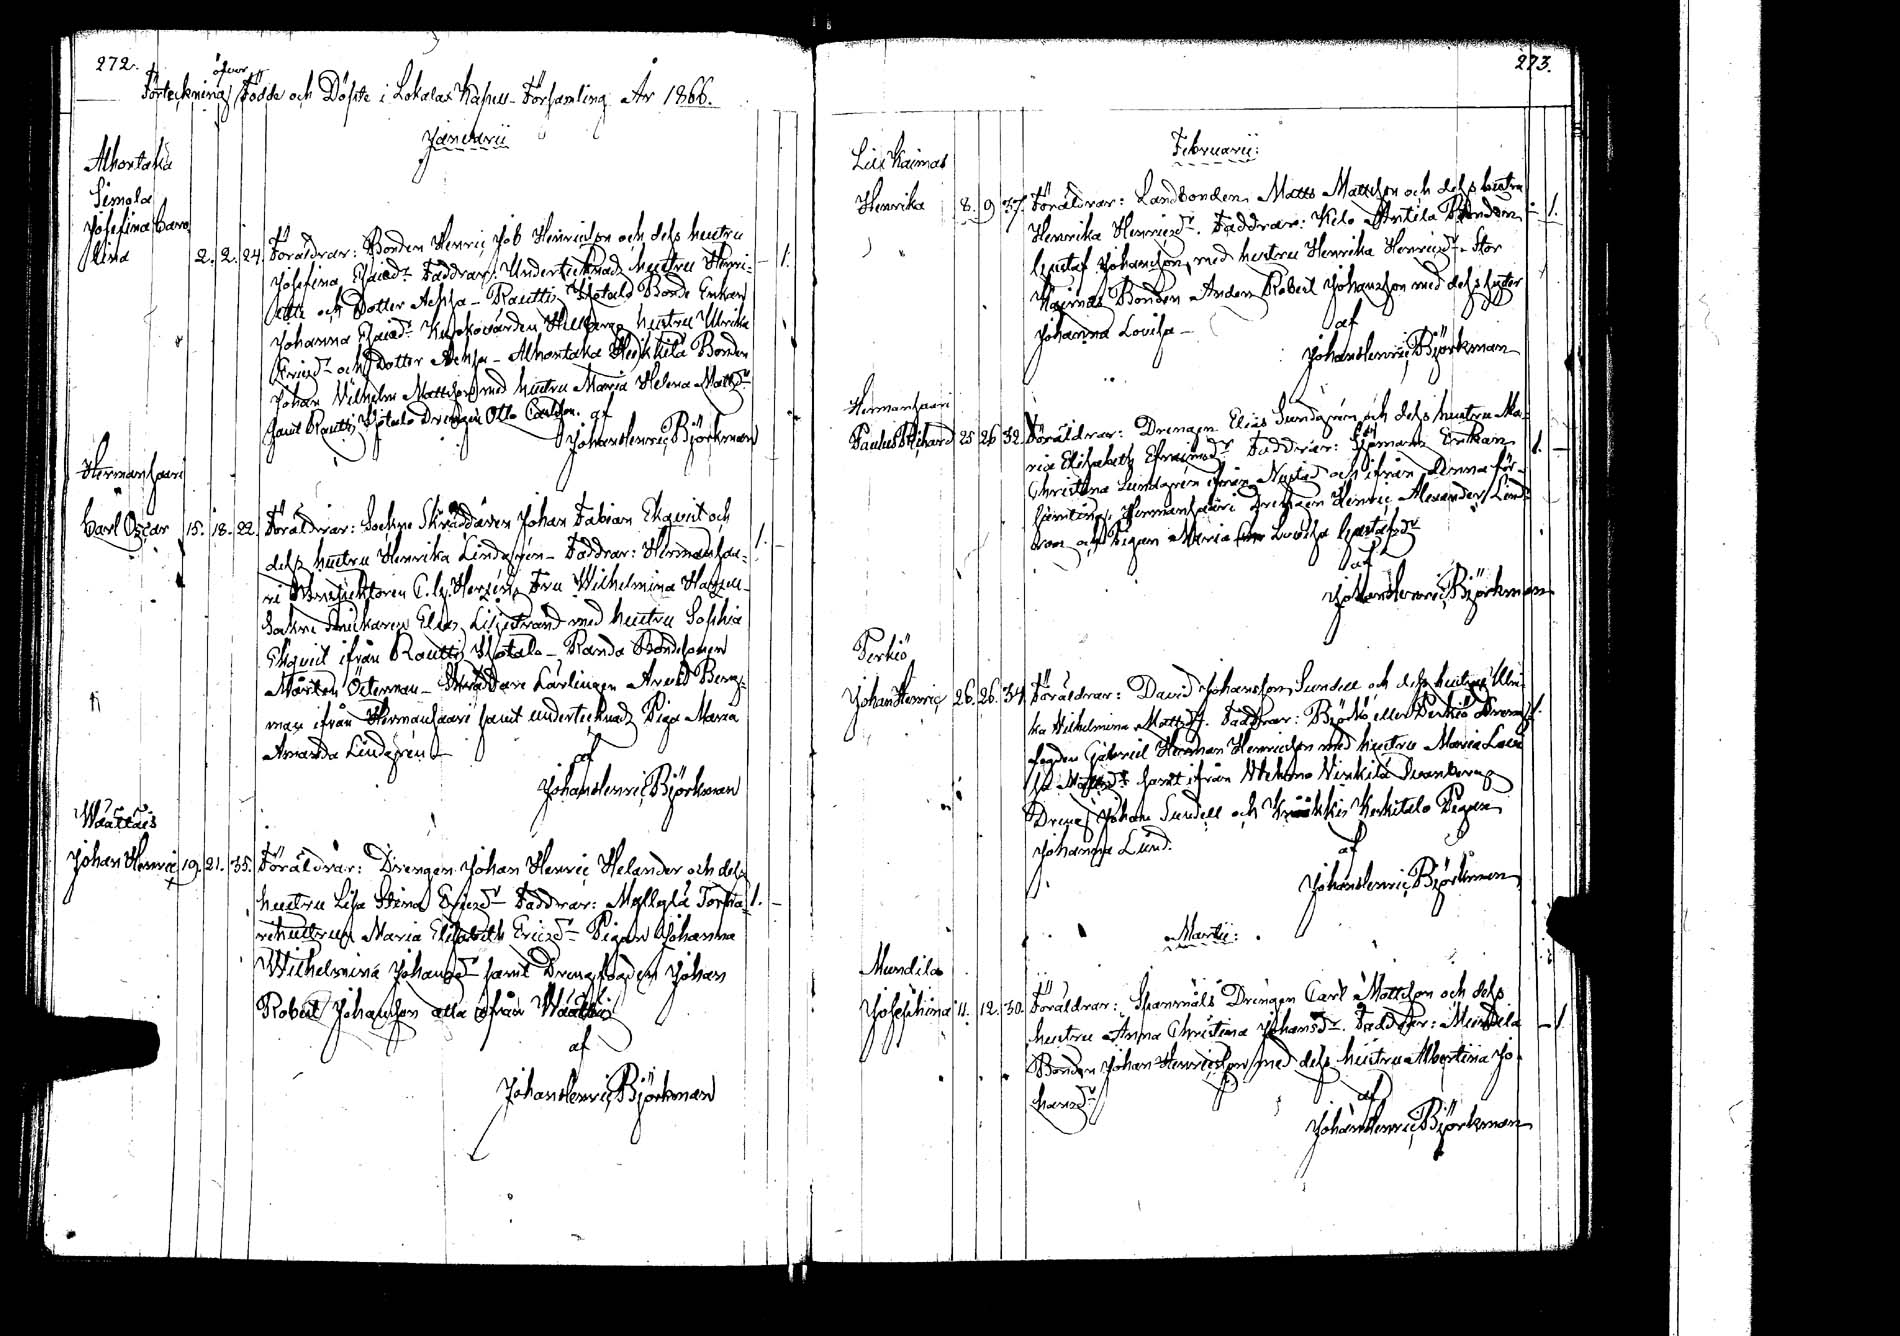 272.
Förteckning öfver Födde och Döpte i Lokalax Kapell-Församling År 1866.
Januarii
Alhontaka
Simola
Josefina Caro
lina 2. 2. 24. Föräldrar: Bonden Henric Job Henricsson och dess hustru — 1.
Josefina Esaiædr. Faddrar: Undertecknads hustru Henri-
ette och Dotter Achsa — Rautti Ylötalo Bonde Enkan
Johanna Esaiædr. hustru Ulrika
Ericsdr och Dotter Achsa — Alhontaka Heikkilä Bonden
Johan Vilhelm Mattsson med hustru Maria Helena Mattsdr
samt Rautti Ylötalo Drengen Otto Carlsson. af
Johan Henric Björkman
Hermansaari
Carl Oscar 15. 18. 22. Föräldrar: Sockne Skräddaren Johan Fabian Ekqvist och 1. —
dess hustru Henrika Lindgrén — Faddrar: Hermansaa-
ri Inspektoren C. G. Fru Wilhelmina
Sockne Snickaren Elias Liljestrand med hustru Sophia
Ekqvist ifrån Rautti Ylötalo — Randa Bondesonen
Mårten Österman — Skräddare Lärlingen Arvid Berg-
man ifrån Hermansaari samt undertecknads Piga Maria
Amanda Lindgrén —
af
Johan Henric Björkman
Wäättäis
Johan Henric 19. 21. 35. Föräldrar: Drengen Johan Henric Helander och dess
hustru Lisa Stina Ericsdr — Faddrar: Torpa- 1. —
rehustrun Maria Elisabeth Ericsdr — Pigan Johanna
Wilhelmina Johansdr samt Drengfogden Johan
Robert Johansson alla ifrån Wäättäis
af
Johan Henric Björkman
273.
Februarii:
Henrika 8. 9 37. Föräldrar: Landbonden Matts Mattsson och dess hustru
Henrika Henricsdr. Faddrar: Kelo Anttila Bonden — 1.
Gustaf Johansson med hustru Henrika Henricsdr — Stor
Kaimas Bonden Anders Robert Johansson med dess syster
Johanna Lovisa —
af
Johan Henric Björkman
Hermansaari
Paulus Richard 25 26 32. Föräldrar: Drengen Elias Lundgrén och dess hustru Ma-
ria Elisabeth Efraimsdr Faddrar: Sjömans Enkan 1. —
Christina Lundgrén ifrån Nystad och ifrån denna för-
samling, Hermansaari Drengen Henric Alexander Lind-
och Pigan Maria Lovisa Gustafsdr
af
Johan Henric Björkman
Perkiö
Johan Henric 26. 26. 34. Föräldrar: David Johansson Sundell och dess hustru Ulri-
ka Wilhelmina Mattsdr. Faddrar: Björkö eller Perkiö Dreng- 1.
fogden Gabriel Herman Henricsson med hustru Maria Lovi
sa Mattsdr samt ifrån
Dreng Johan Sundell och Pigan
Johanna Lund.
af
Johan Henric Björkman
Martii:
Mundila
Josephina 11. 12. 30. Föräldrar: Drengen Carl Mattsson och dess
hustru Anna Christina Johansdr. Faddrar: Mundila — 1.
Bonden Johan Henricsson med dess hustru Albertina Jo-
hansdr
af
Johan Henric Björkman